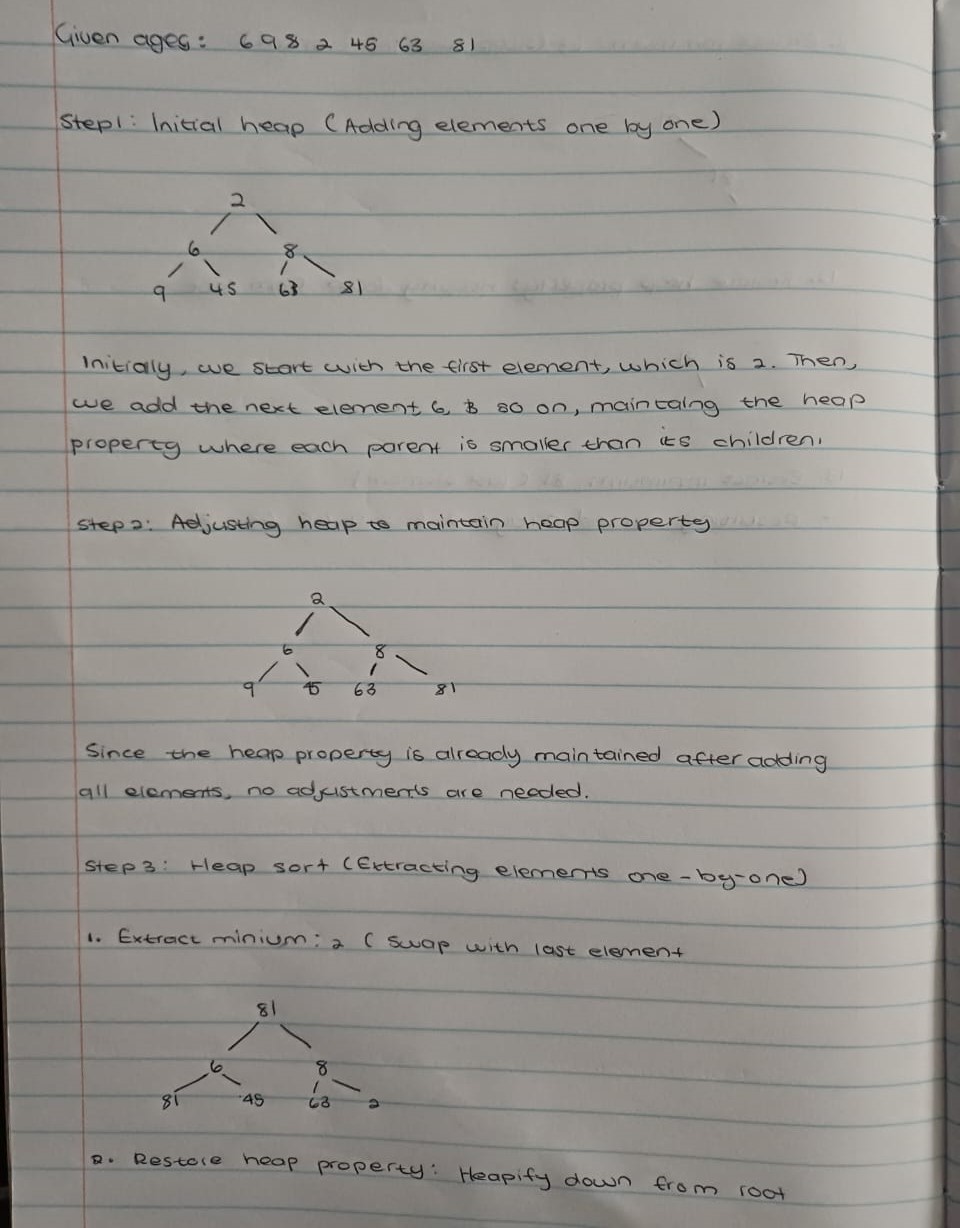 Given ages: 6 9 8 2 45 63 81
Step1: Initial heap (Adding elements one by one)
2
6 8
9 45 63 81
Initially, we start with the first element, which is 2. Then,
we add the next element 6, & so on, maintaing the heap
property where each parent is smaller than its children.
Step 2: Adjusting heap to maintain heap property
2
6 8
9 45 63 81
Since the heap property is already maintained after adding
all elements, no adjustments are needed.
Step 3: Heap sort (Extracting elements one-by-one)
1. Extract minium: 2 ( swap with last element
81
6 8
81 45 63 2
2. Restore heap property: Heapify down from root